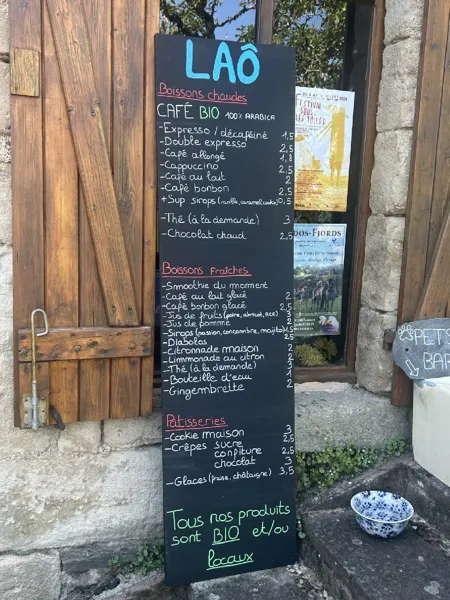 LAÔ
Boissons chaudes
CAFÉ BIO 100% ARABICA
-Expresso / décaféiné 1,5
-Double expresso 2,5
-Café allongé 1,8
-Cappuccino 2,5
-Café au lait 2
-Café bonbon 2,5
+Sup sirops (vanille, caramel, cookie) 0,5
-Thé (à la demande) 3
-Chocolat chaud 2,5
Boissons Fraîches
-Smoothie du moment
-Café au lait glacé 2
-Café bonbon glacé 2,5
-Jus de fruits (poire, abricot, ace) 3
-Jus de pomme 2
-Sirops (passion, concombre, mojito) 1,5
-Diabolos 2,5
-Citronnade maison 2
-Limmonade au citron 2
-Thé (à la demande) 3
-Bouteille d'eau 1
-Gingembrette 2
Patisseries
-Cookie maison 3
-Crêpes sucre 2,5
confiture 2,5
chocolat 3
-Glaces (fraise, châtaigne) 3,5
Tous nos produits
sont BIO et/ou
locaux
FESTIVAL
SOUS
LES
DOS-FJORDS
PETS
BAR